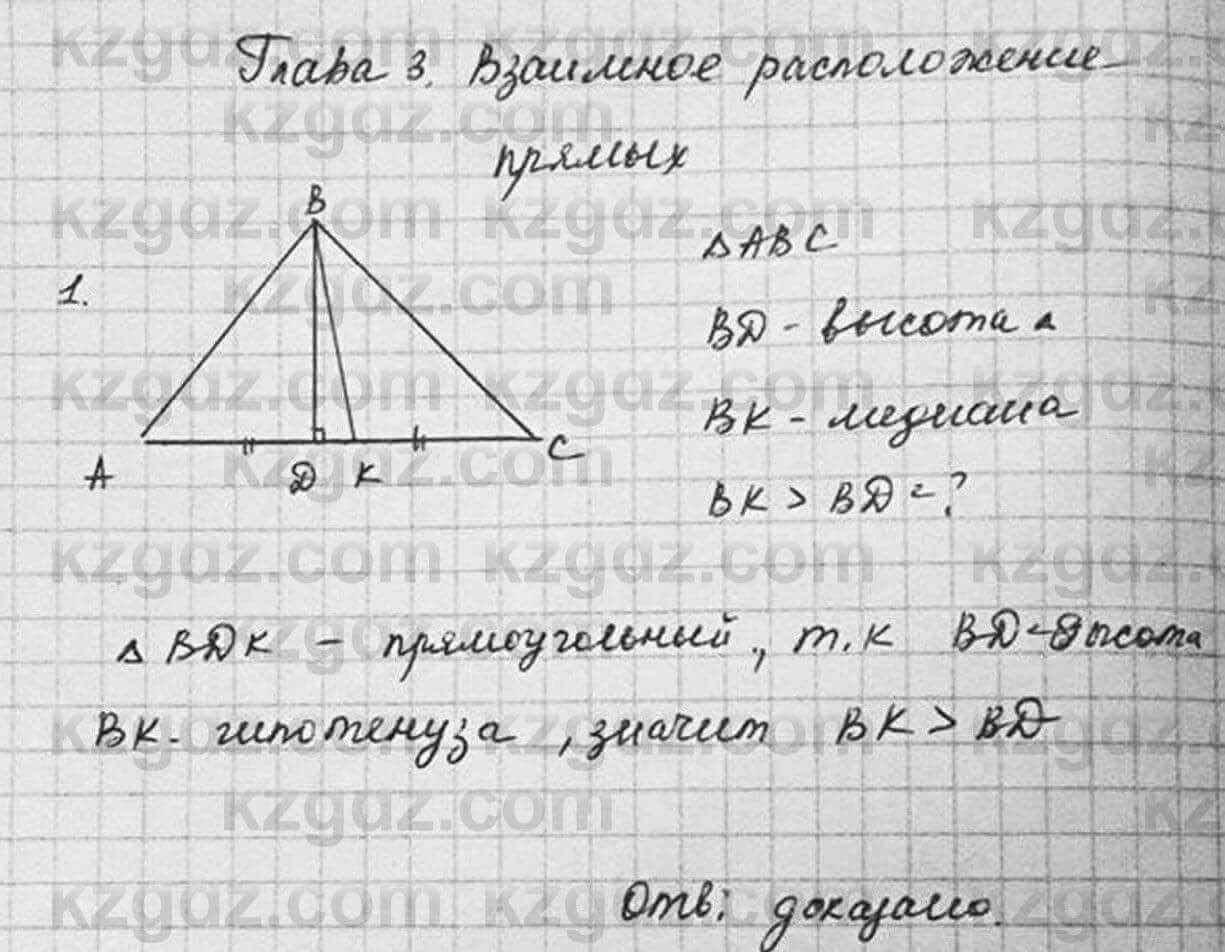 Глава 3. Взаимное расположение
прямых
1.
B
A
D
K
C
△ABC
BD - высота △
BK - медиана
BK > BD - ?
△ BDK - прямоугольный, т.к BD - высота
BK - гипотенуза, значит BK > BD
Отв: доказано.
kzgdz.com